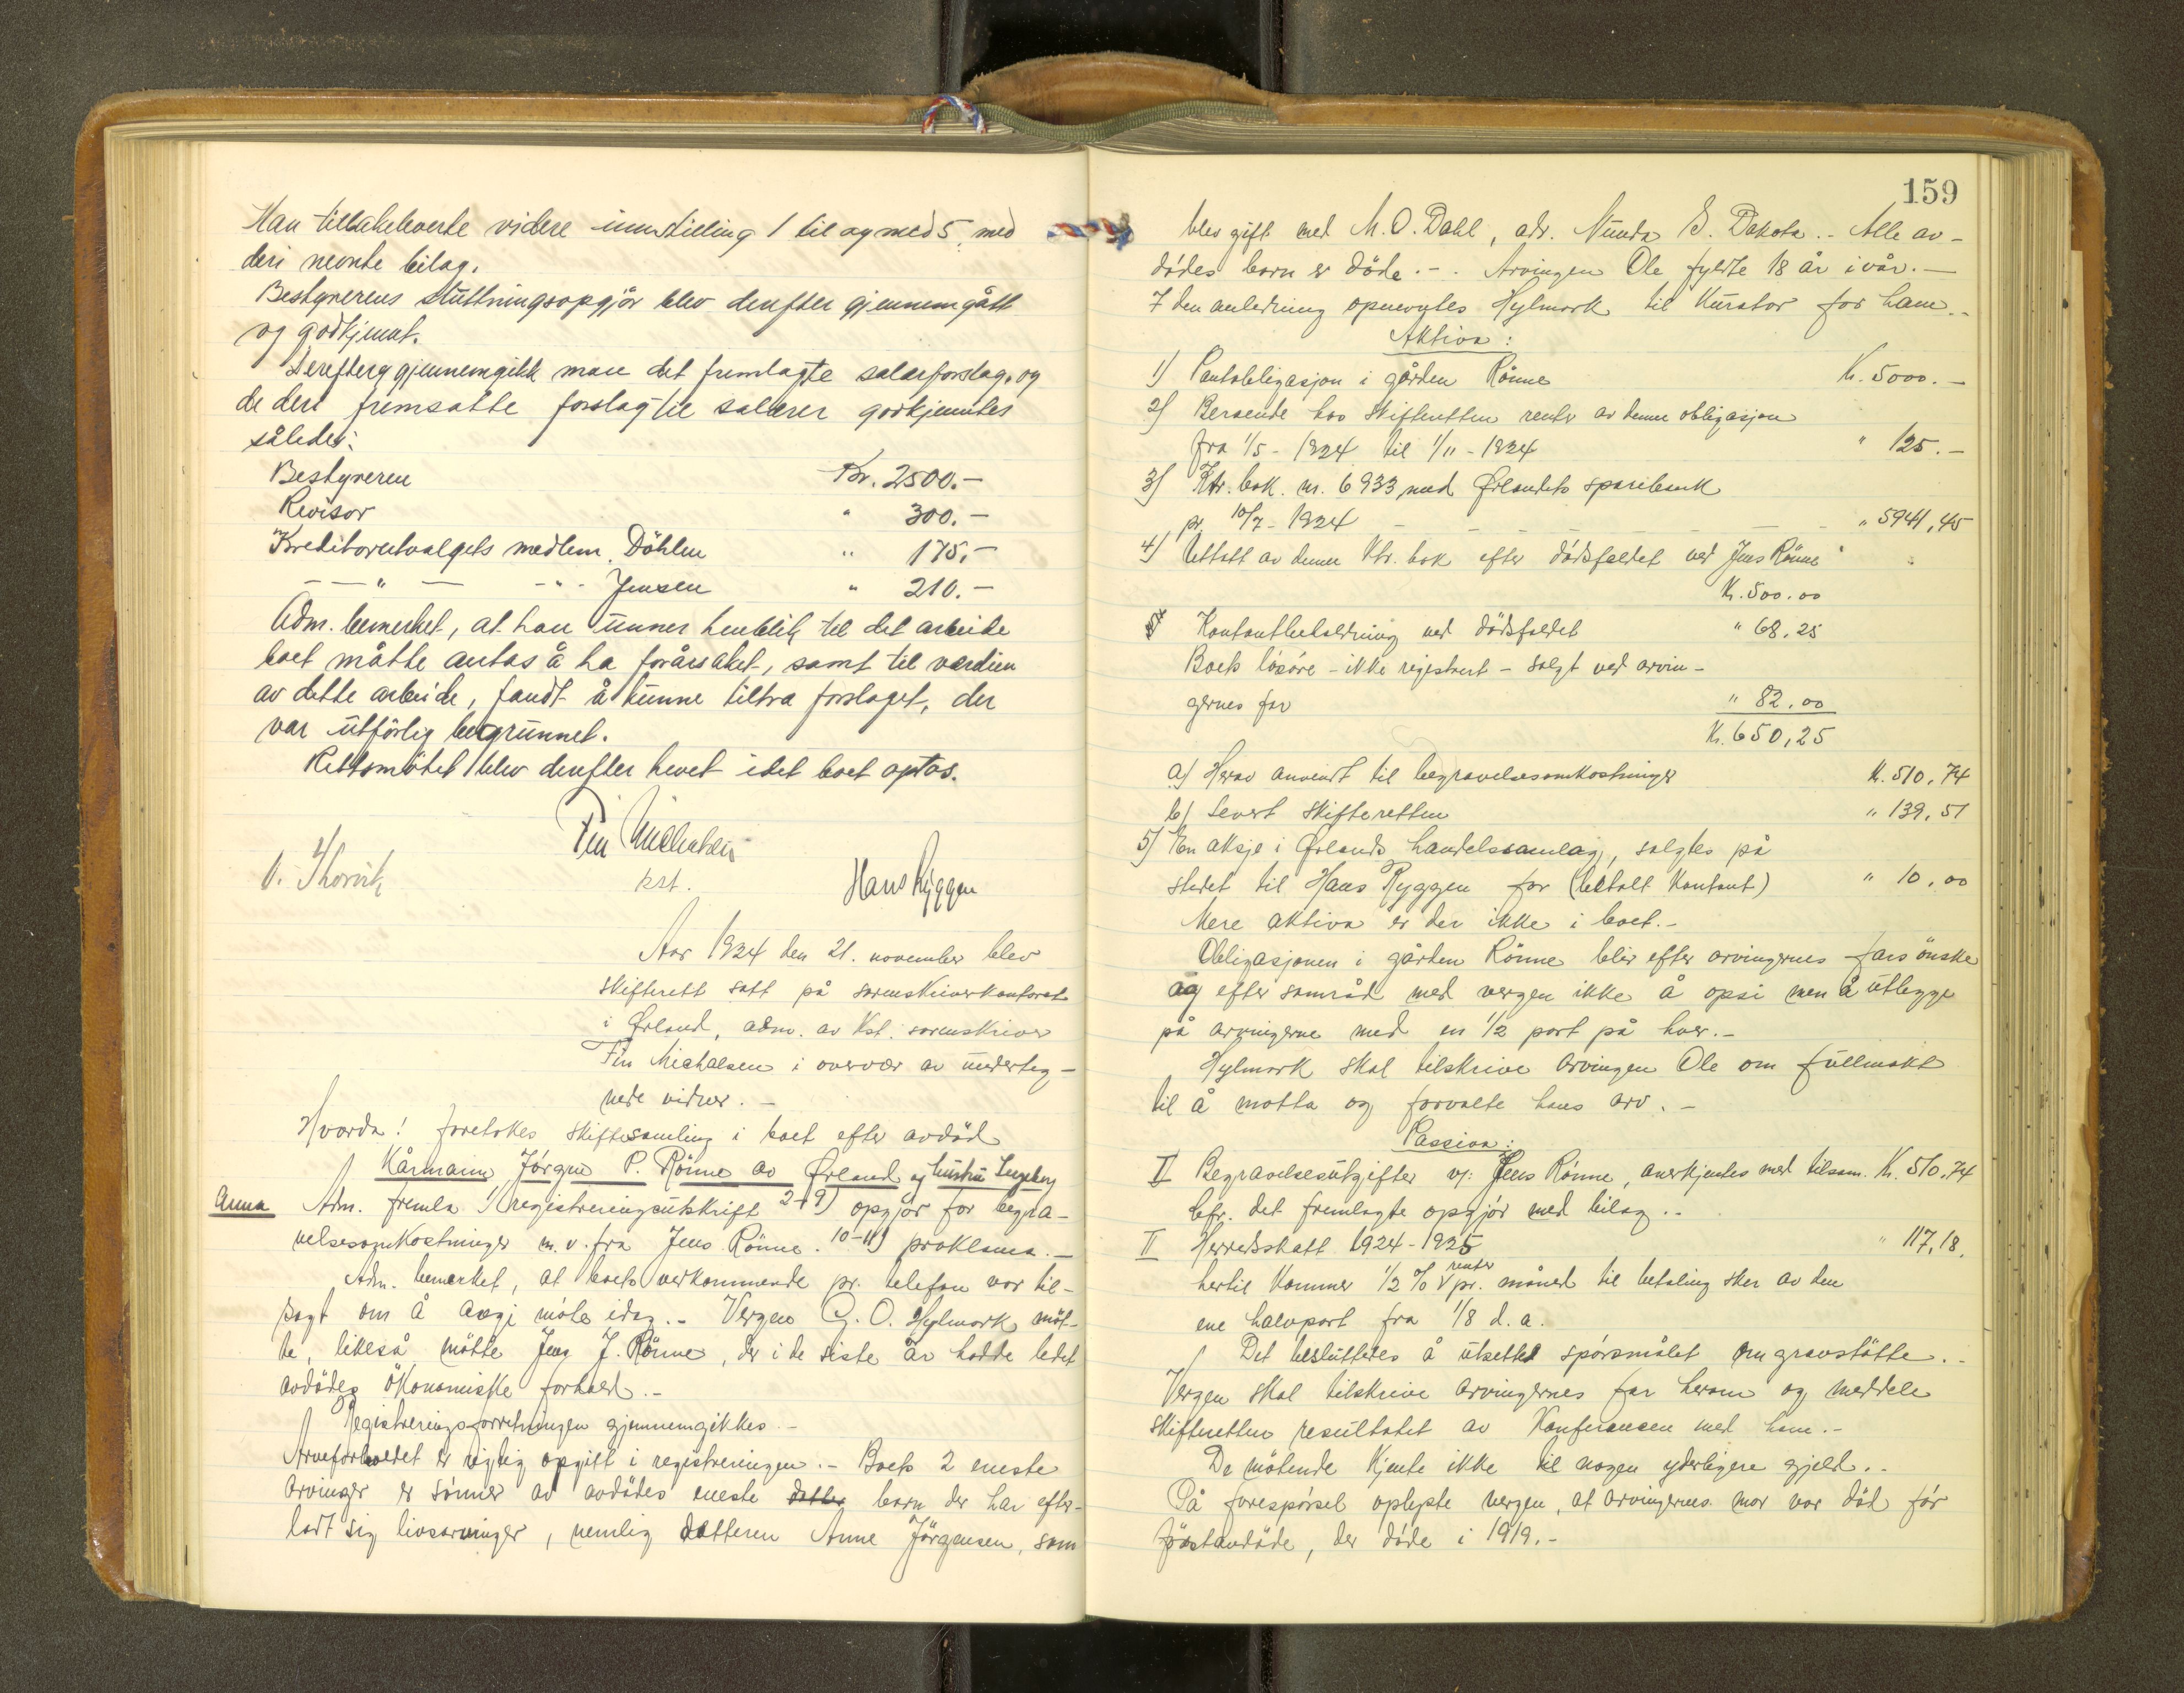 Han tilbakeleverte videre innstilling 1 til og med 5, med
deri nevnte bilag.
Bestyrerens sluttningsopgjör blev derefter gjennemgått
og godkjennt.
Derefter gjennemgikk man det fremlagte salærforslag, og
de deri fremsatte forslag til salærer godkjenntes
således:
Bestyreren Kr. 2500.-
Revisor " 300.-
Kreditorutvalgets medlem Döhlen " 175,-
— " — - " - Jensen " 210.-
Adm. bemerket, at han under henblik til det arbeide
boet måtte antas å ha forårsaket, samt til verdien
av dette arbeide, fandt å kunne tiltra forslaget, der
var utförlig begrunnet.
Rettsmötet blev derefter hevet idet boet optas.
Fin Michalsen
kst.
Hans Ryggen
Aar 1924 den 21. november blev
skifterett satt på sorenskriverkontoret
i Ørland, adm. av Kst. sorenskriver
Fin Michalsen i overvær av underteg-
nede vidner. -
Hvorda! foretokes skiftesamling i boet efter avdöd
Kårmann Jörgen P. Rönne av Ørland og hustru Ingeborg
Anna Adm. fremla 1) registreringsutskrift 2-9) opgjör for begra-
velsesomkostninger m. v. fra Jens Rönne. 10-11) proklama. -
Adm. bemerket, at boets vedkommende pr. telefon var til-
sagt om å møte idag. - Vergen G. O. Hylmork möt-
te, likeså mötte Jens J. Rönne, der i de siste år hadde ledet
avdödes ökonomiske forhold. -
Registreringsforretningen gjennemgikkes. -
Arveforholdet er riktig opgitt i registreringen. - Boets 2 eneste
arvinger er sönner av avdödes eneste datter barn der har efter-
latt sig livsarvinger, nemlig datteren Anne Jörgensen, som
159
blev gift med M. O. Dahl, adr. Nunda S. Dakota. - Alle av-
dödes barn er döde. - . Arvingen Ole fyldte 18 år i vår. -
I den anledning opnevntes Hylmork til Kurator for ham. -
Aktiva:
1) Pantobligasjon i gården Rönne Kr. 5000. -
2) Beroende hos skifteretten renter av denne obligasjon
fra 1/5 - 1924 til 1/11 - 1924 " 125. -
3) Ktr. bok. nr. 6933 med Ørlandets sparebank
pr. 10/7 - 1924 - - - - - " 5941,45
4) Uttatt av denne Ktr. bok efter dödsfaldet ved Jens Rönne
Kr. 500.00
Kontantbeholdning ved dödsfaldet " 68,25
Boets lösöre - ikke registrert - solgt ved arvin-
gernes far " 82.00
Kr. 650,25
a) Herav anvendt til begravelsesomkostninger Kr. 510,74
b) Levert skifteretten " 139,51
5) En aksje i Ørlands handelssamlag, solgtes på
stedet til Hans Ryggen for (betalt kontant) " 10,00
Mere aktiva er der ikke i boet. -
Obligasjonen i gården Rönne blir efter arvingernes fars önske
og efter samråd med vergen ikke å opsi men å utlegge
på arvingerne med en 1/2 part på hver. -
Hylmork skal tilskrive arvingen Ole om fullmakt
til å motta og forvalte hans arv. -
Passiva:
I Begravelsesutgifter v/: Jens Rönne, anerkjentes med tilsam. Kr. 510,74
kfr. det fremlagte opgjör med bilag. -
II Herredsskatt 1924-1925 " 117,18.
hertil kommer 1/2 % renter pr. måned til betaling sker av den
ene halvpart fra 1/8 d. a.
Det besluttedes å utsette spörsmålet om gravstötte. -
Vergen skal tilskrive arvingernes far herom og meddele
skifteretten resultatet av konferansen med ham. -
De mötende kjente ikke til nogen yderligere gjeld. -
På forespörsel oplyste vergen, at arvingernes mor var död för
förstavdöde, der döde i 1919. -